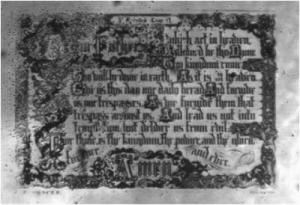 Our Father Which art in heaven,
Hallowed be thy Name
Thy kingdom come
Thy will be done in earth, As it is in heaven
Give us this day our daily bread And forgive
us our trespasses, As we forgive them that
trespass against us. And lead us not into
temptation, but deliver us from evil
For thine is the kingdom, the power, and the glory,
for ever and ever.
Amen